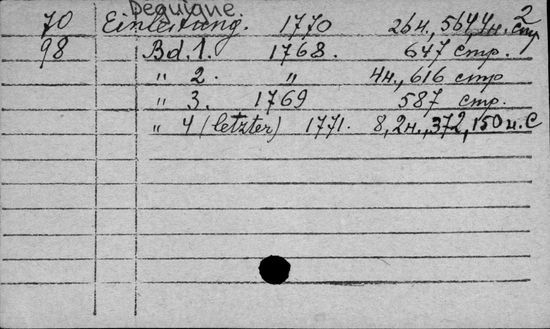 Deguigne 2
70 Einleitung. 1770 26н., 564, 4н. стр
98 Bd. 1. 1768. 647 стр.
" 2. " 4н., 616 стр
" 3. 1769 587 стр.
" 4 (letzter) 1771. 8, 2н., 372, 150н. С